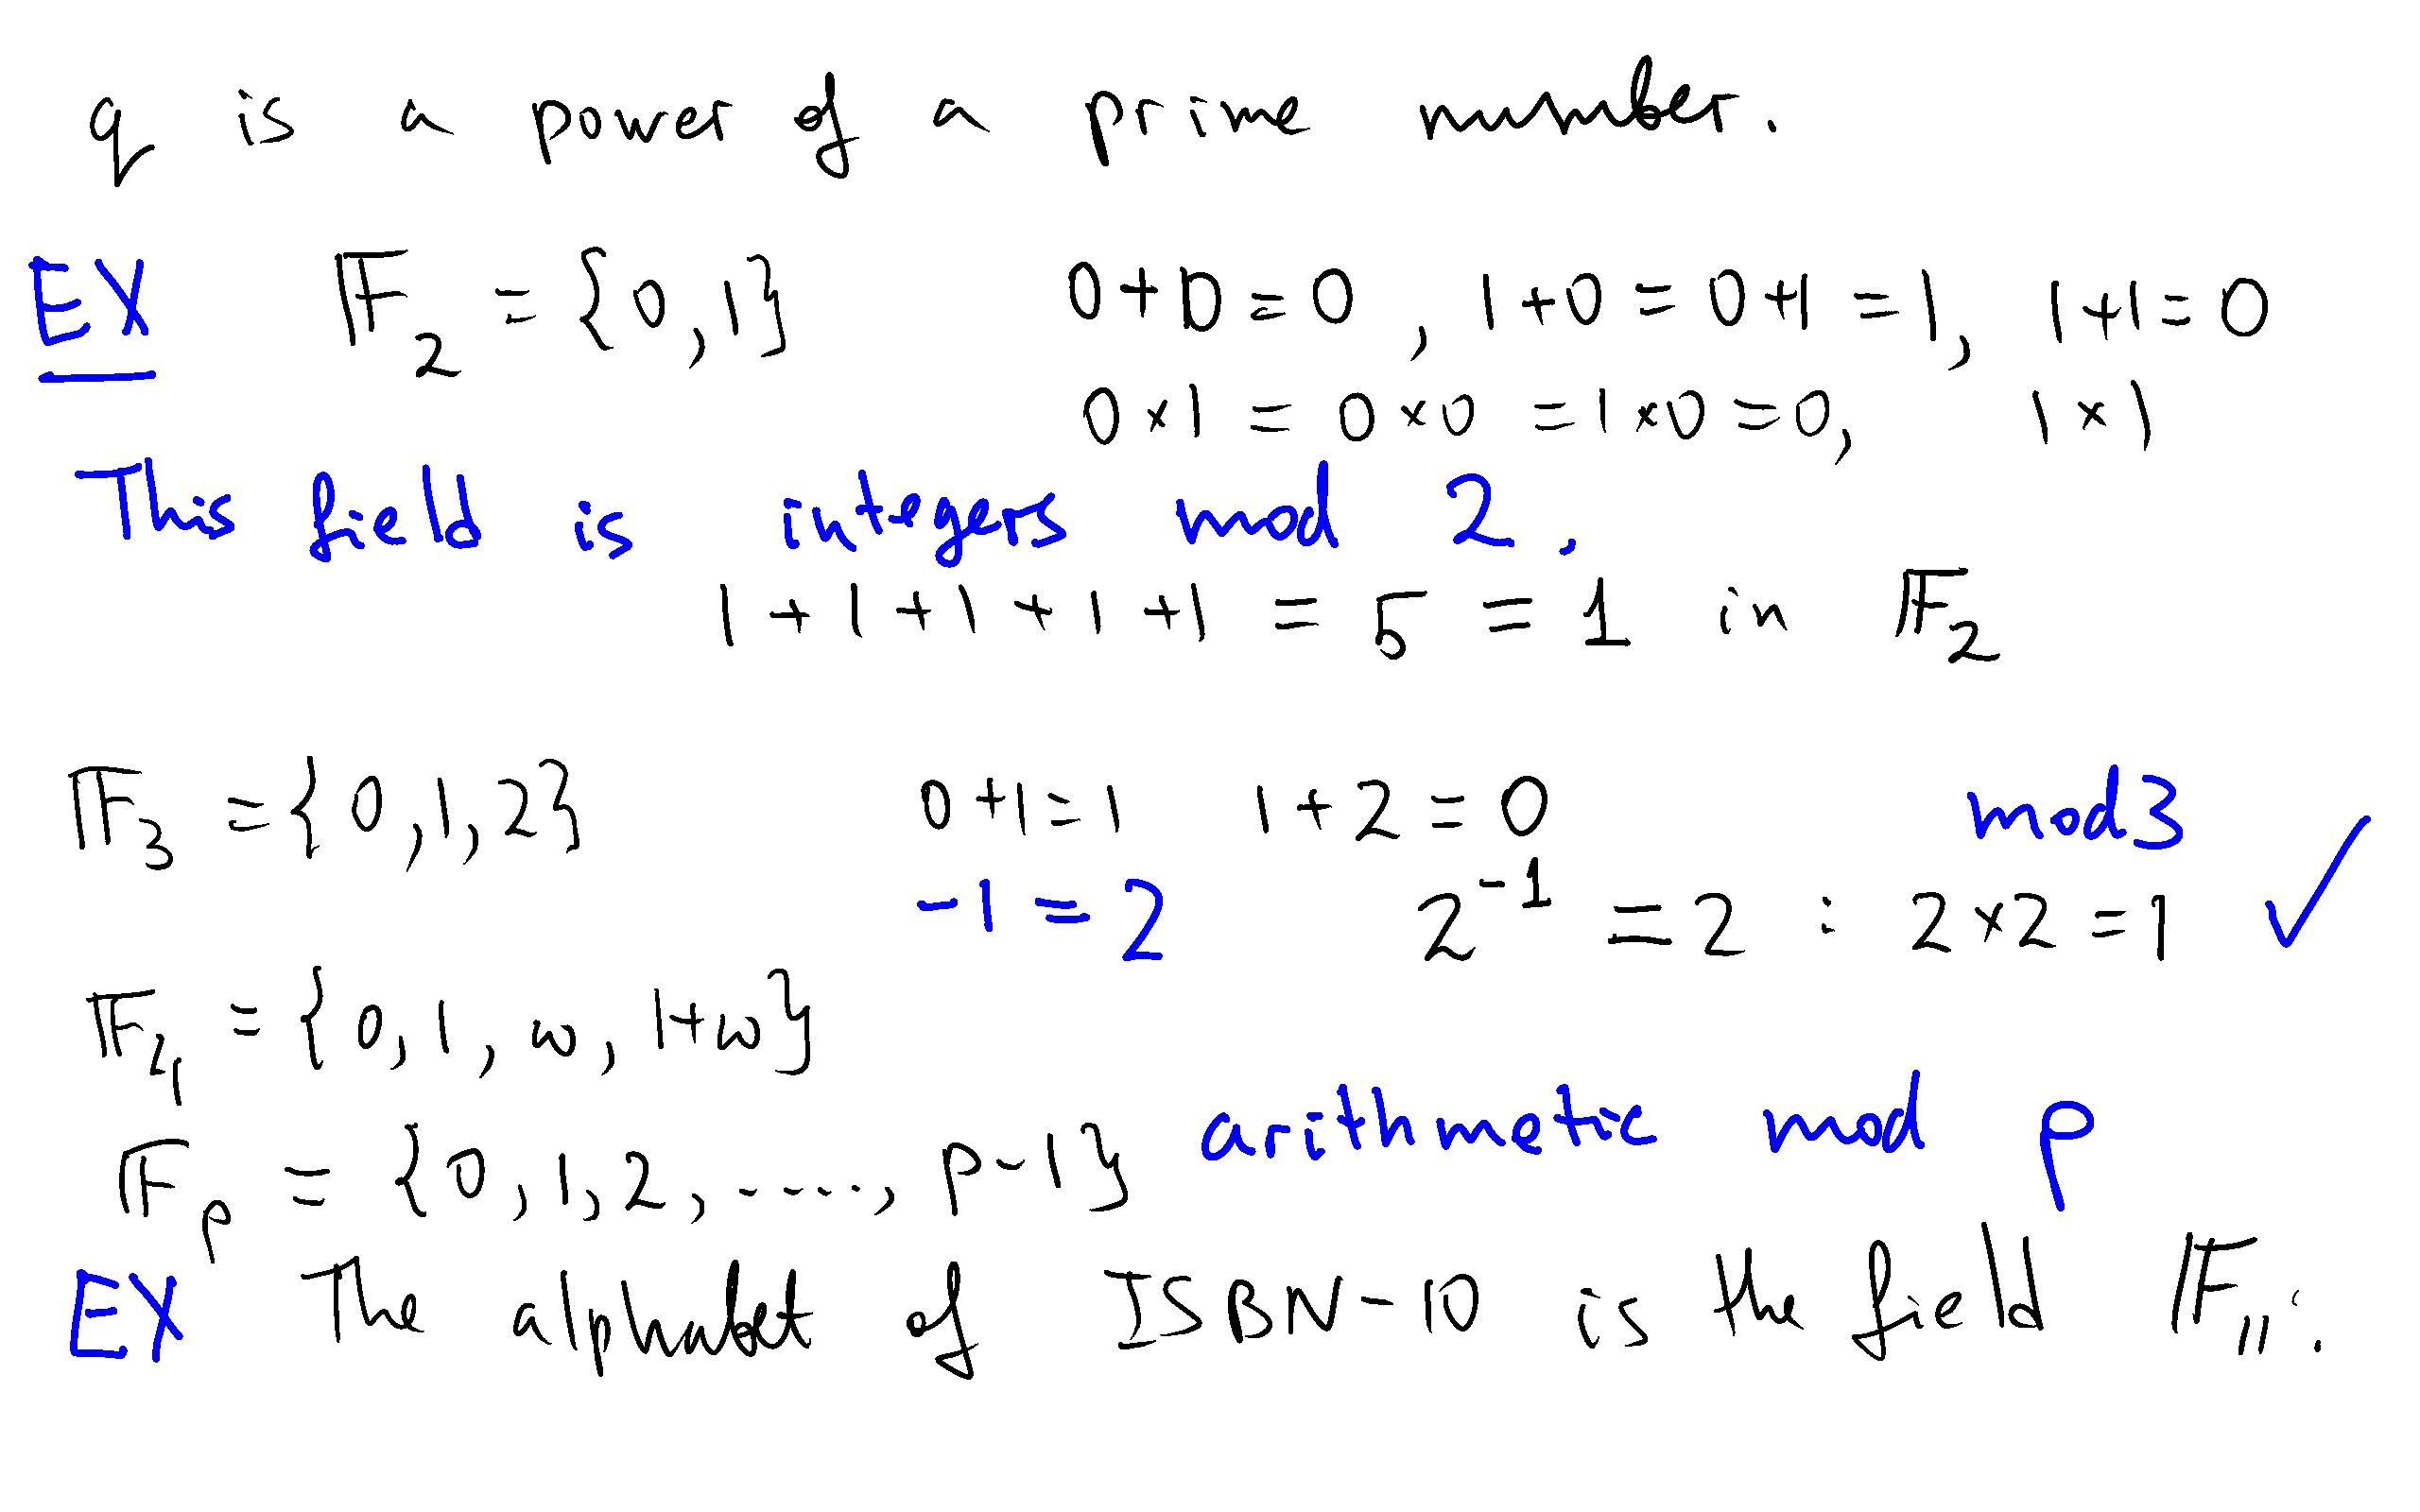 q is a power of a prime number.
EX 𝔽₂ = {0,1} 0+0=0, 1+0=0+1=1, 1+1=0
0×1 = 0×0 = 1×0 = 0, 1×1
This field is integers mod 2.
1+1+1+1+1 = 5 = 1 in 𝔽₂
𝔽₃ = {0,1,2} 0+1=1 1+2=0 mod3
-1=2 2⁻¹ = 2 : 2×2=1 ✓
𝔽₄ = {0,1,ω,1+ω}
𝔽ₚ = {0,1,2,....., p-1} arithmetic mod p
EX The alphabet of ISBN-10 is the field 𝔽₁₁.